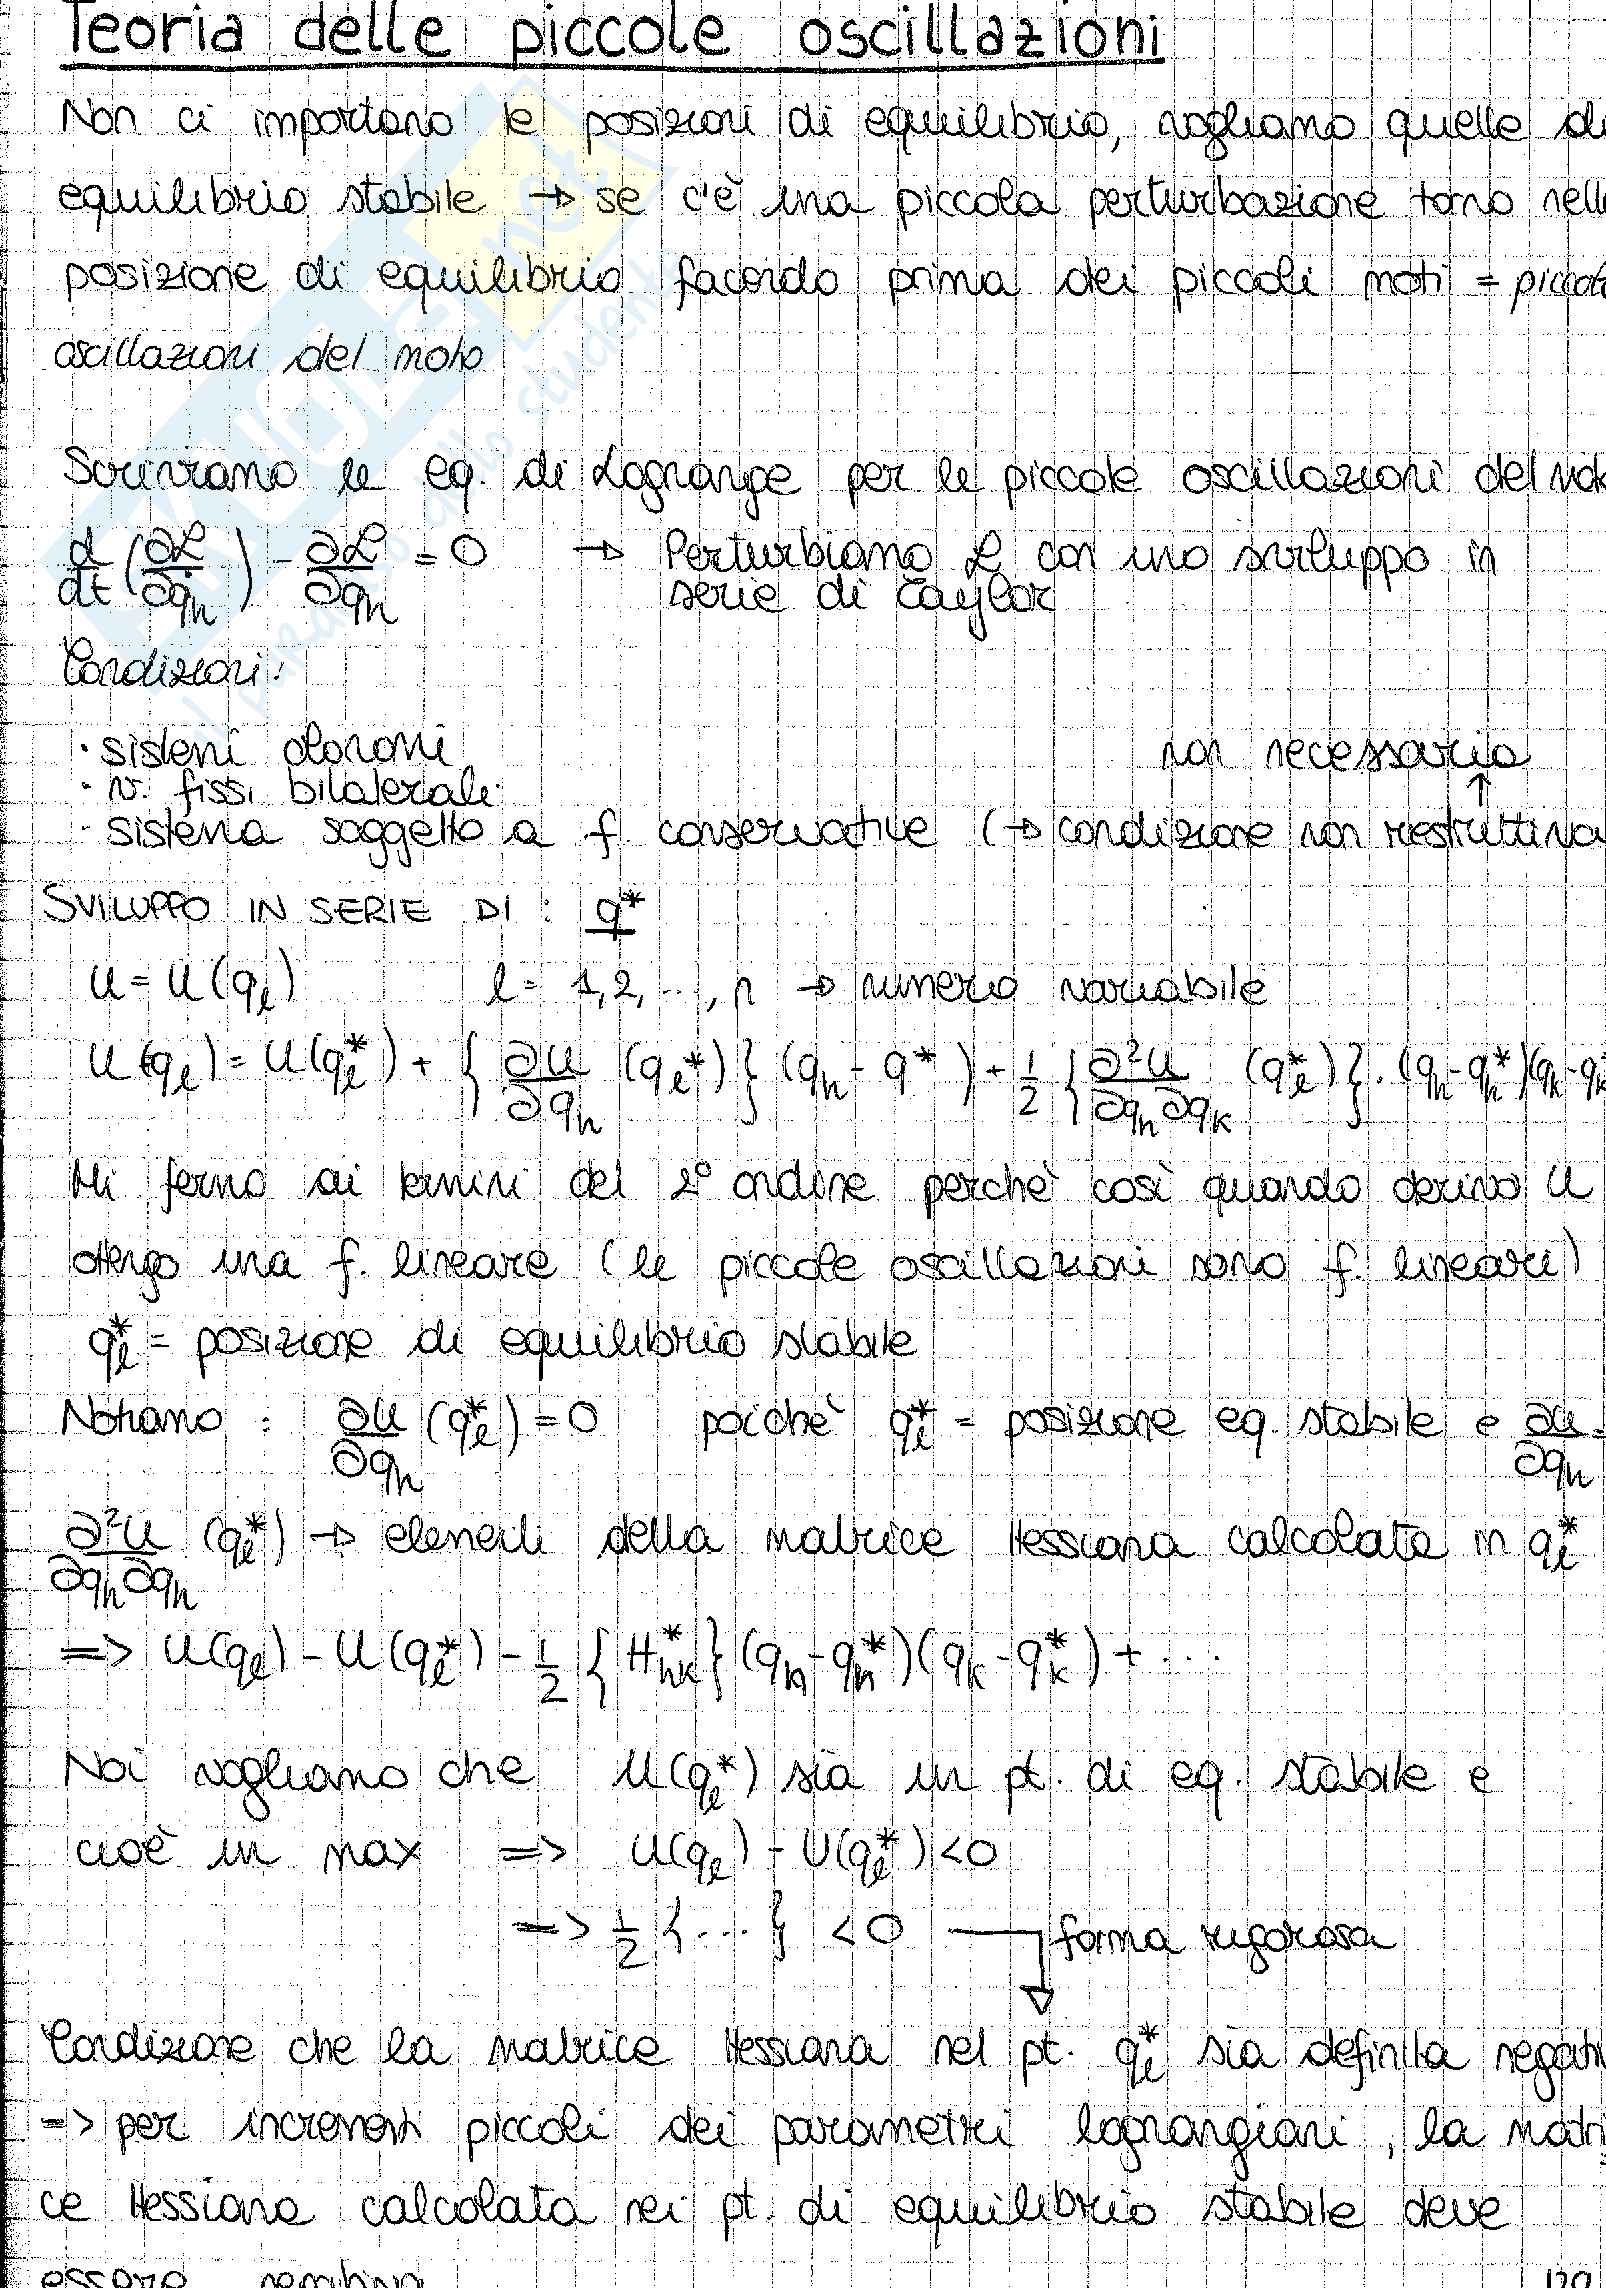 Teoria delle piccole oscillazioni
Non ci importano le posizioni di equilibrio, vogliamo quelle di
equilibrio stabile → se c'è una piccola perturbazione torno nell
posizione di equilibrio facendo prima dei piccoli moti = piccole
oscillazioni del moto
Scriviamo le eq. di Lagrange per le piccole oscillazioni del moto
d/dt (∂L/∂q̇h) - ∂L/∂qh = 0 → Perturbiamo L con uno sviluppo in
serie di Taylor
Condizioni:
· sistemi olonomi
non necessaria
· v. fissi bilaterali
· sistema soggetto a f. conservative (→ condizione non restrittiva
SVILUPPO IN SERIE DI : q*
U = U(qℓ) ℓ = 1,2,...,n → numero variabile
U(qℓ) = U(qℓ*) + {∂U/∂qh (qℓ*)} (qh - q*) + 1/2 {∂²U/∂qh∂qk (qℓ*)} · (qh - qh*)(qk - qk
Mi fermo ai termini del 2° ordine perchè così quando derivo U
ottengo una f. lineare (le piccole oscillazioni sono f. lineari)
qℓ* = posizione di equilibrio stabile
Notiamo : ∂U/∂qh (qℓ*) = 0 poichè qℓ* = posizione eq. stabile e ∂U/∂qh =
∂²U/∂qh∂qh (qℓ*) → elementi della matrice Hessiana calcolata in qℓ*
=> U(qℓ) - U(qℓ*) - 1/2 {H*hk} (qh - qh*)(qk - qk*) + ...
Noi vogliamo che U(qℓ*) sia un pt. di eq. stabile e
cioè un max => U(qℓ) - U(qℓ*) < 0
=> 1/2 {...} < 0 → forma rigorosa
Condizione che la matrice Hessiana nel pt. qℓ* sia definita negati
=> per incrementi piccoli dei parametri lagrangiani, la matri
ce Hessiana calcolata nei pt. di equilibrio stabile deve
essere